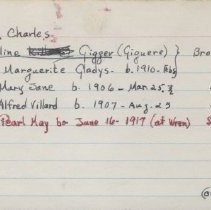 , Charles
line Gigger (Giguere) } Bra
Marguerite Gladys. b. 1910-
Mary Jane b. 1906 - Mar 25,
Alfred Villard b. 1907 - Aug 23
Pearl May b. June 16 - 1917 (at Wren)